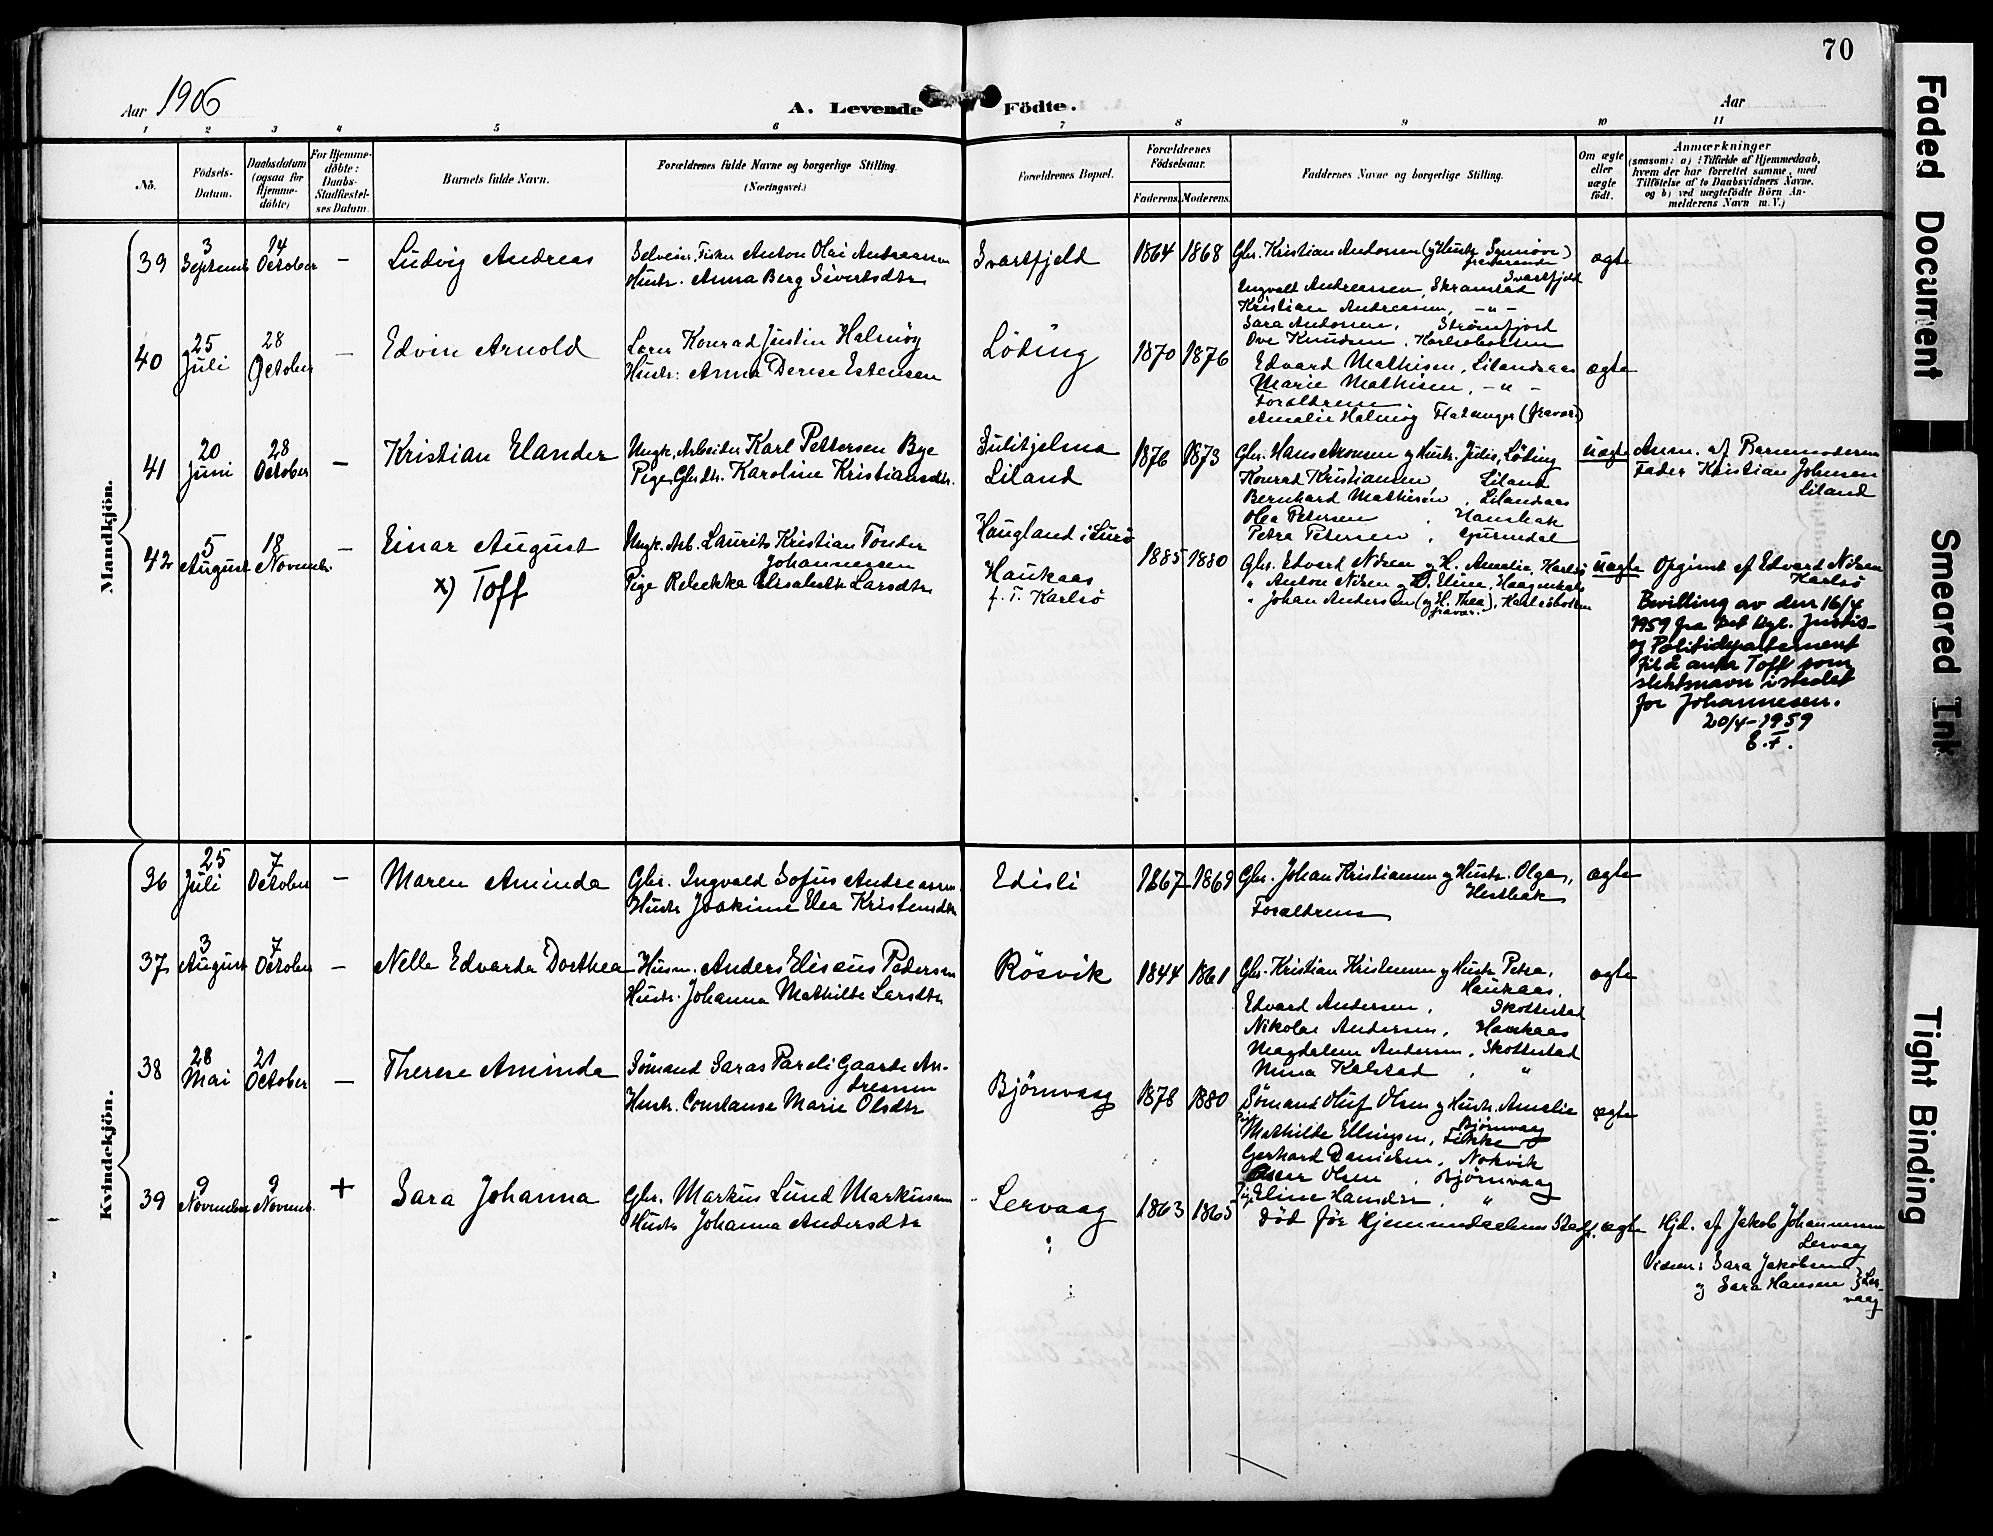 70
Aar 1906
A. Levende Födte.
Aar
1 2 3 4 5 6 7 8 9 10 11
No.
Födsels-
Datum.
Daabsdatum
(ogsaa for
Hjemme-
döbte)
For Hjemme-
döbte:
Daabs-
Stadfæstel-
ses Datum.
Barnets fulde Navn.
Forældrenes fulde Navne og borgerlige Stilling.
(Næringsvei.)
Forældrenes Bopæl.
Forældrenes
Födselsaar.
Faderens. Moderens.
Faddernes Navne og borgerlige Stilling.
Om ægte
eller
uægte
födt.
Anmærkninger
(saasom: a) i Tilfælde af Hjemmedaab,
hvem der har forrettet samme, med
Tilföielse af to Daabsvidners Navne,
og b) ved uægtefödte Börn An-
melderens Navn m. V.)
Mandkjön.
39
3
Septemb
14
October
–
Ludvig Andreas
Selveier, Fisker Anton Olai Andreassen
Hustr. Anna Berg Sivertsdtr
Svartfjeld
1864 1868
Gbr. Kristian Andorsen (g Hustr. Synnöve)
fraværende
Svartfjeld
Ingvald Andreassen, Skramstad
Kristian Andreassen, – " –
Sara Andorsen, Strömfjord
Ove Knudsen, Karlsöbotten
ægte
40
25
Juli
28
October
–
Edvin Arnold
Konrad Justin Halmøy
Hustr. Anna Derese Estensen
Löding
1870 1876
Edvard Mathisen, Lilandsaas
Marie Mathisen, – " –
Forældrene
Amalie Halmøy, Flatanger (fravær.)
ægte
41
20
Juni
28
October
–
Kristian Elander
Ungk. Arbeider Karl Pettersen Bye
Pige, Gbrdtr. Karoline Kristiansdtr.
Sulitjelma
Liland
1876 1873
Gbr. Hans Aronsen g Hustr. Julie, Löding
Konrad Kristiansen, Liland
Bernhard Mathisen, Lilandsaas
Olea Petersen,
Petra Petersen,
uægte
Anm. af Barnemoderens
Fader Kristian Johnsen
Liland
42
5
August
18
Novemb.
–
Einar August
x) Toff
Ungk. Arb. Laurits Kristian Tönder
Johannessen
Pige Rebekka Elisabeth Larsdtr
Haugland i Lurö
Haukaas
f. T. Karlsö
1885 1880
Gbr. Edvard Nilsen g H. Amalie, Karlsö
" Anton Nilsen g H. Eline,
" Johan Andersen (g H. Thea), Karlsöbotten
fravær.
uægte
Opgivet af Edvard Nilsen
Karlsö
Bevilling av den 16/4
1959 fra Det Kgl. Justis-
og Politidepartement
til å anta Toff som
slektsnavn istedet
for Johannesen.
20/4–1959
E. F.
Kvindekjön.
36
25
Juli
7
October
–
Maren Aminda
Gbr. Ingvald Sofus Andreassen
Hustr Joakime Elea Kristensdtr
Edisli
1867 1869
Gbr. Johan Kristiansen g Hustr. Olga,
Hestbak
Forældrene
ægte
37
3
August
7
October
–
Nelle Edvarda Dorthea
Husm. Anders Eliseus Pedersen
Hustr. Johanna Mathilde Larsdtr
Rösvik
1844 1861
Gbr. Kristian Kristensen g Hustr Petra,
Haukaas,
Edvard Andersen, Skottestad
Nikolai Andersen, Haukaas
Magdalena Andersen, Skottestad
Mina Kalstad, "
ægte
38
28
Mai
21
October
–
Therese Aminda
Sömand Saras Pareli Gaarde An-
dresen
Hustr. Constanse Marie Olsdtr
Bjørnvaag
1878 1880
Sömand Oluf Olsen g Hustr. Amalie
Bjørnvaag
Mathilde Ellingsen,
Gerhard Danielsen, Nokvik
Olsen, Bjørnvaag
Pige Eline Hansdtr "
ægte
39
9
November
9
Novemb.
+
Sara Johanna
Gbr. Markus Lund Markussen
Hustr Johanna Andersdtr
Lervaag
1863 1865
Död för Hjemmedaabens Stadf.
ægte
Hjd. af Jakob Johannesen
Lervaag
Vidner: Sara Jakobsen
g Sara Hansen } Ler-
vaag
Faded Document
Smeared Ink
Tight Binding